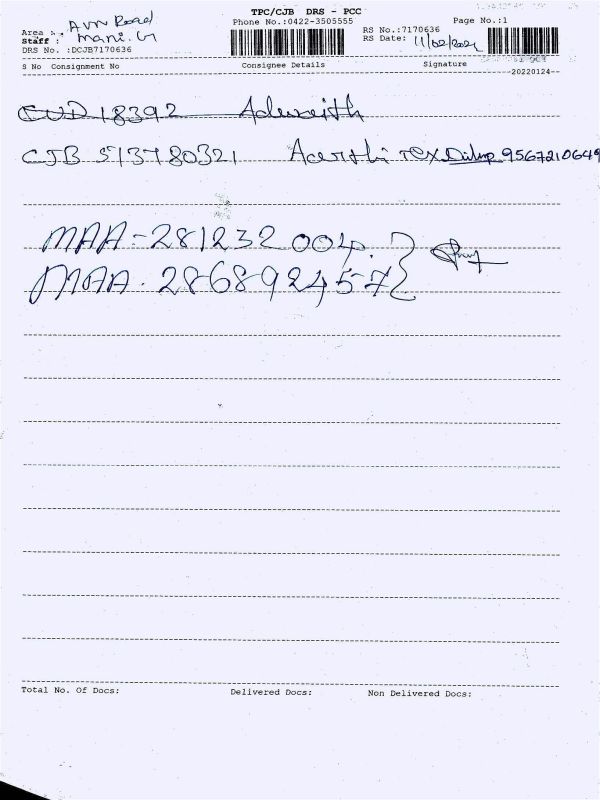 TPC/CJB DRS - PCC
Phone No.:0422-3505555
Page No.:1
Area : Avn Road
Staff : mani. G
DRS No. :DCJB7170636
RS No.:7170636
RS Date: 11/02/202
S No Consignment No Consignee Details Signature
20220124
18392
CJB 513780321 9567210649
MAA - 281232 004.
MAA. 286892457
Total No. Of Docs: Delivered Docs: Non Delivered Docs: